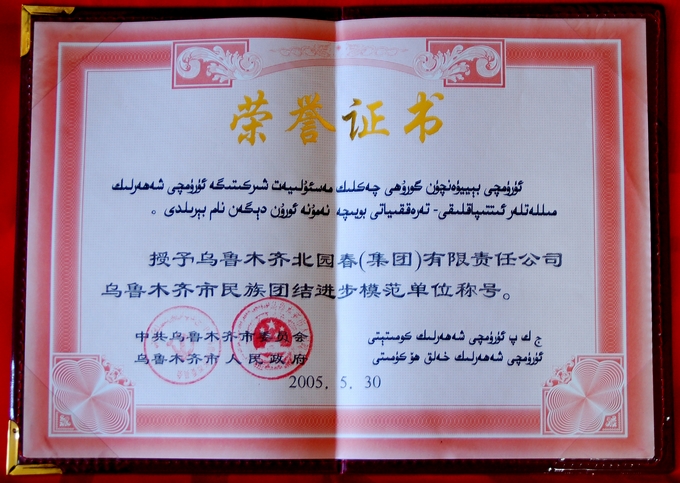 荣誉证书
ئۈرۈمچى بېييۈەنچۈن گۇرۇھى چەكلىك مەسئۇلىيەت شىركىتىگە ئۈرۈمچى شەھەرلىك
مىللەتلەر ئىتتىپاقلىقى- تەرەققىياتى بويىچە نەمۇنە ئورۇن دېگەن نام بېرىلدى .
授予乌鲁木齐北园春(集团)有限责任公司
乌鲁木齐市民族团结进步模范单位称号。
中共乌鲁木齐市委员会
乌鲁木齐市人民政府
ج ك پ ئۈرۈمچى شەھەرلىك كومىتېتى
ئۈرۈمچى شەھەرلىك خەلق ھۆكۈمىتى
2005. 5. 30